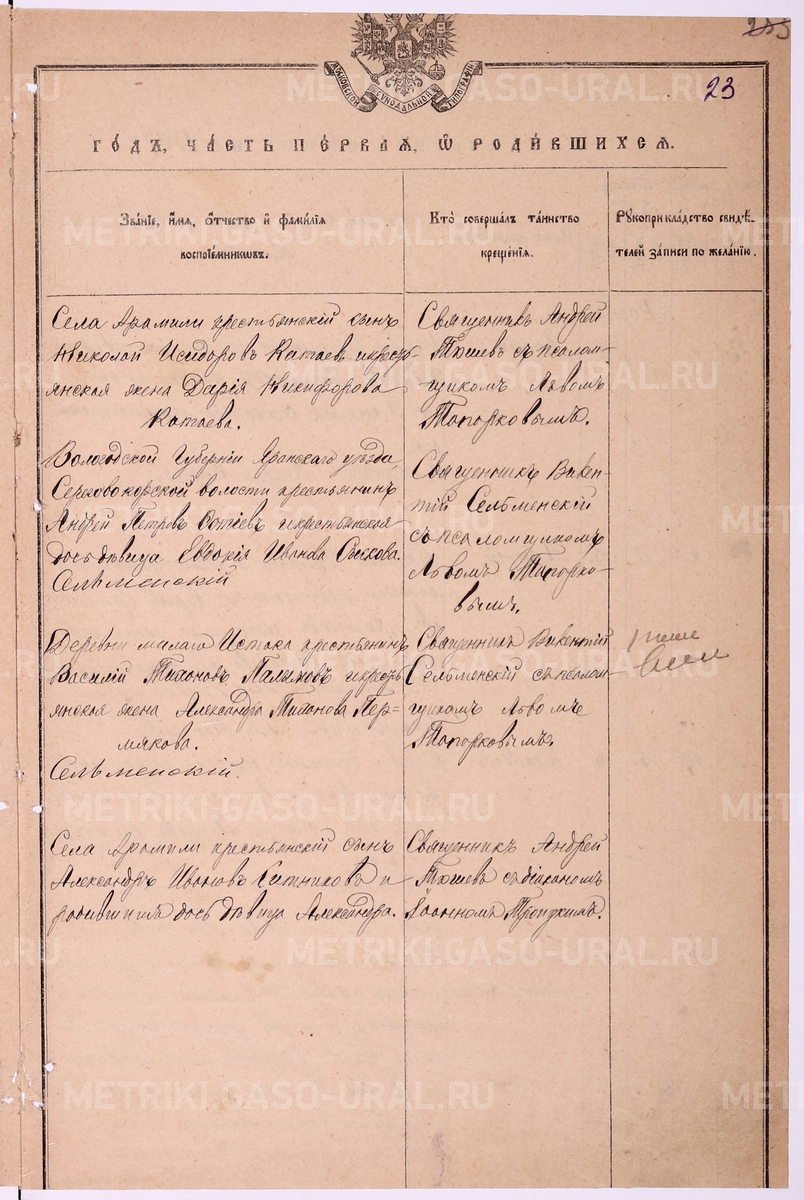 23
МОСКОВСКОЙ СѴНОДАЛЬНОЙ ТИПОГРАФІИ
ГО́ДЪ, ЧА́СТЬ ПЕ́РВАЯ, Ѡ҆ РОДИ́ВШИХСЯ.
Зва́нїе, и҆́мя, ѻ҆́тчество и҆ фами́лїя
воспрїе́мниковъ.
Кто̀ соверша́лъ та́инство
креще́нїя.
Рꙋкоприкла́дство свидѣ́-
телей за́писи по жела́нїю.
Села Арамили крестьянскій сынъ
Николай Исидоровъ Катаевъ и кресть-
янская жена Дарія Никифорова
Катаева.
Священникъ Андрей
съ псалом-
щикомъ Львомъ
Топорковымъ.
Вологодской Губерніи Яранскаго уѣзда,
волости крестьянинъ
Андрей Петровъ и крестьянская
дочь дѣвица Евдокія Иванова
Сельменскій
Священникъ Викен-
тій Сельменскій
съ псаломщикомъ
Львомъ Топорко-
вымъ.
Деревни малаго Истока крестьянинъ
Василій Тихоновъ и кресть-
янская жена Александра Тихонова Пер-
мякова.
Сельменскій.
Священникъ Викентій
Сельменскій съ псалом-
щикомъ Львомъ
Топорковымъ.
Села Арамили крестьянскій сынъ
Александръ Ивановъ Ситниковъ и
дочь дѣвица Александра.
Священникъ Андрей
съ діакономъ
Іоанномъ
METRIKI.GASO-URAL.RU